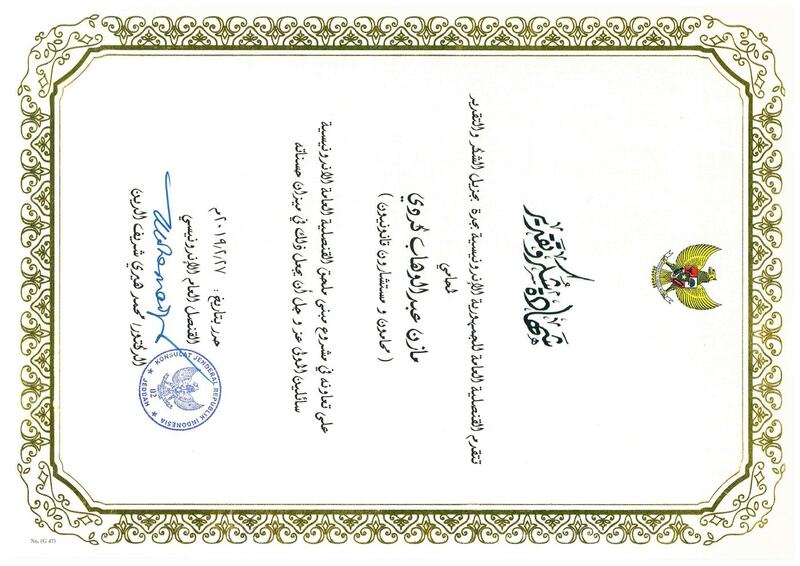 شهادة شكر وتقدير
تتقدم القنصلية العامة للجمهورية الإندونيسية بجدة بجزيل الشكر والتقدير
لمحامي
مازن عبدالوهاب كردي
( محامون و مستشارون قانونيون )
على تعاونه في مشروع مبنى ملحق القنصلية العامة الاندونيسية
سائلين المولى عز و جل أن يجعل ذلك في ميزان حسناته
حرر بتاريخ : ٢٠١٩/١/٢٧م
القنصل العام الإندونيسي
الدكتور/ محمد هيري شريف الدين
KONSULAT JENDERAL REPUBLIK INDONESIA
02
JEDDAH
No. IG 475